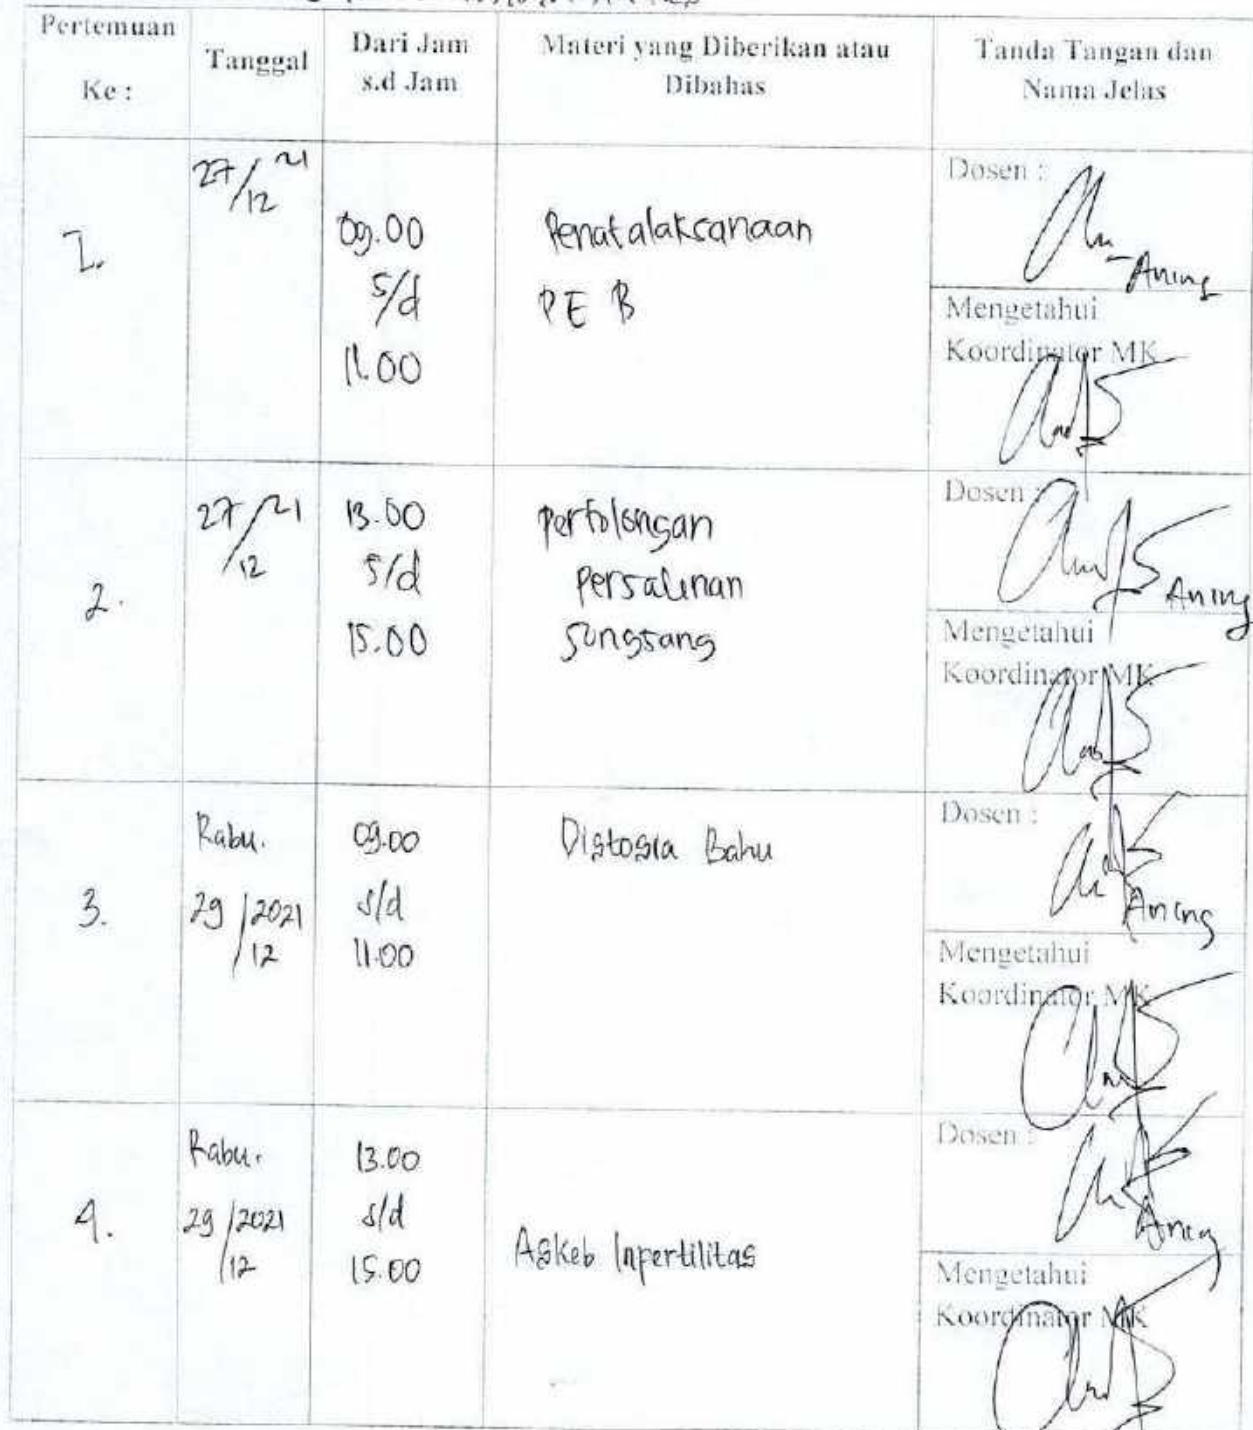 Pertemuan
Ke :
Tanggal
Dari Jam
s.d Jam
Materi yang Diberikan atau
Dibahas
Tanda Tangan dan
Nama Jelas
1.
27/12 21
09.00
s/d
11.00
Penatalaksanaan
PE B
Dosen :
Aning
Mengetahui
Koordinator MK
2.
27/12 21
13.00
s/d
15.00
Pertolongan
Persalinan
Sungsang
Dosen :
Aning
Mengetahui
Koordinator MK
3.
Rabu.
29/12 2021
09.00
s/d
11.00
Distosia Bahu
Dosen :
Aning
Mengetahui
Koordinator MK
4.
Rabu.
29/12 2021
13.00
s/d
15.00
Askeb Inpertilitas
Dosen :
Aning
Mengetahui
Koordinator MK